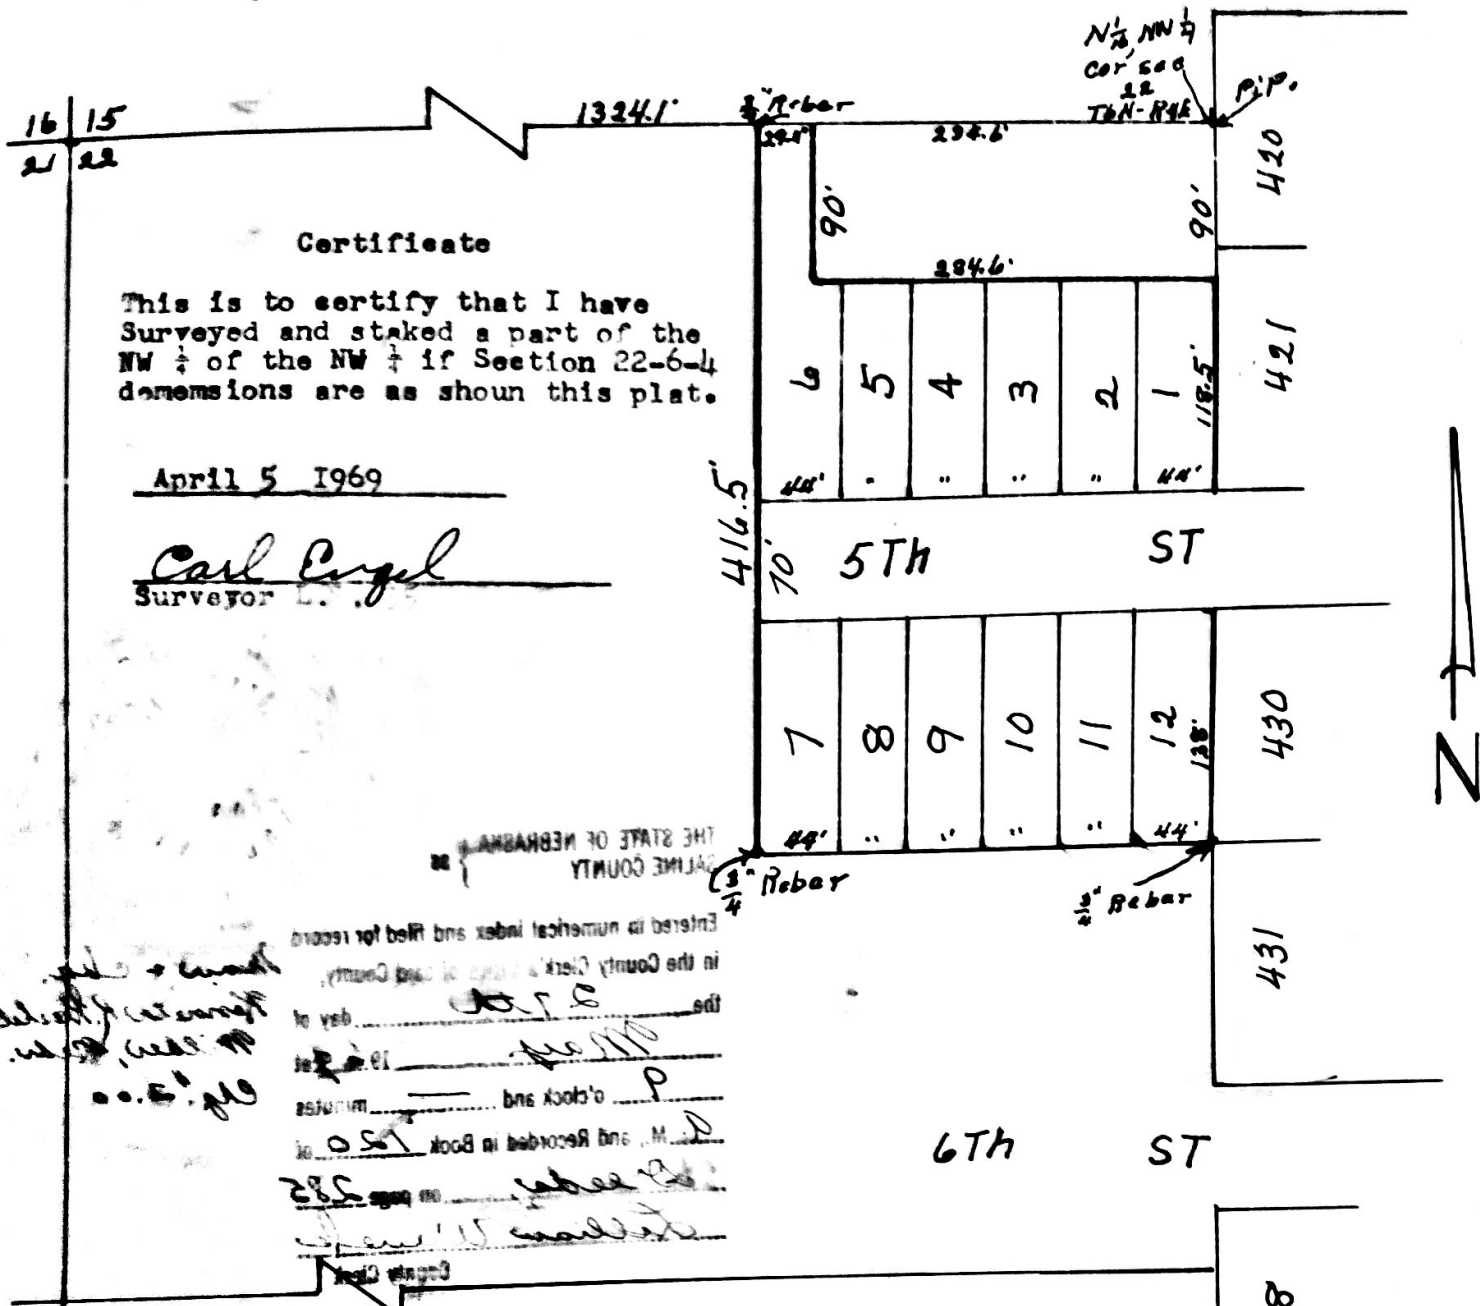 N 1/16, NW 1/4
Cor sec
22
T6N-R4E
P.i.P.
16 15
21 22
1324.1'
3/4" Rebar
294.6'
420
90'
90'
284.6'
Certificate
This is to certify that I have
Surveyed and staked a part of the
NW 1/4 of the NW 1/4 if Section 22-6-4
demensions are as shoun this plat.
April 5 1969
Carl Engel
Surveyor
6 5 4 3 2 1
118.5'
421
44' " " " " 44'
416.5'
70'
5Th ST
7 8 9 10 11 12
138'
430
44' " " " " 44'
3/4" Rebar
3/4" Rebar
N
431
THE STATE OF NEBRASKA
SALINE COUNTY } ss
Entered in numerical index and filed for record
in the County Clerk's of said County,
the 27th day of
May 19 at
9 o'clock and — minutes
A. M., and Recorded in Book 120 of
Deeds, on page 285
County Clerk
Chg. 2.00
6Th ST
8